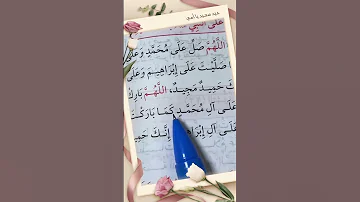 على النبي
اللَّهُمَّ صَلِّ عَلَى مُحَمَّدٍ وَعَلَى
صَلَّيْتَ عَلَى إِبْرَاهِيمَ وَعَلَى
حَمِيدٌ مَجِيدٌ، اللَّهُمَّ بَارِكْ
عَلَى آلِ مُحَمَّدٍ كَمَا بَارَكْتَ
عَلَى آلِ إِبْرَا إِنَّكَ حَمِيدٌ